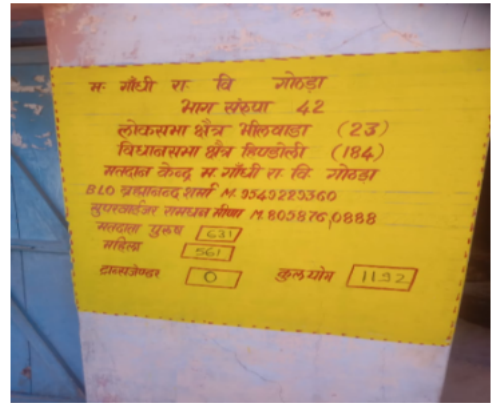 म. गाँधी रा. वि गोठड़ा
भाग संख्या 42
लोकसभा क्षेत्र भीलवाडा (23)
विधानसभा क्षेत्र हिण्डोली (184)
मतदान केन्द्र म. गाँधी रा. वि. गोठड़ा
BLO ब्रह्मानन्द शर्मा M. 9549229360
सुपरवाईजर रामधन मीणा M. 8058760888
मतदाता पुरुष 631
महिला 561
ट्रान्सजेण्डर 0 कुल योग 1192